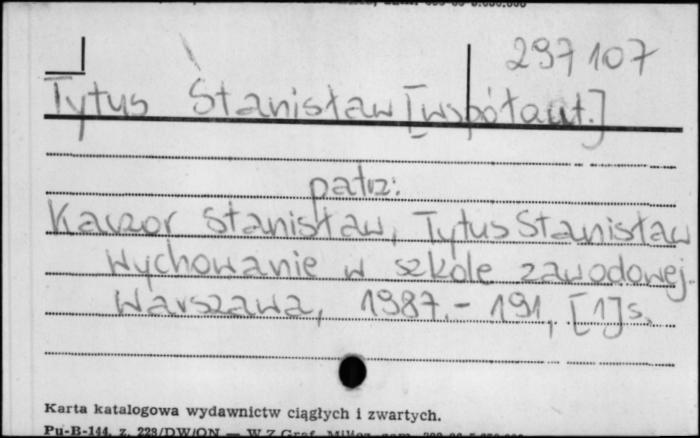 297107
Tytus Stanisław [współaut.]
patrz:
Kaczor Stanisław, Tytus Stanisław
Wychowanie w szkole zawodowej.
Warszawa, 1987. - 191, [1] s.
Karta katalogowa wydawnictw ciągłych i zwartych.
Pu-B-144, z. 228/DW/ON — W.Z.Graf.